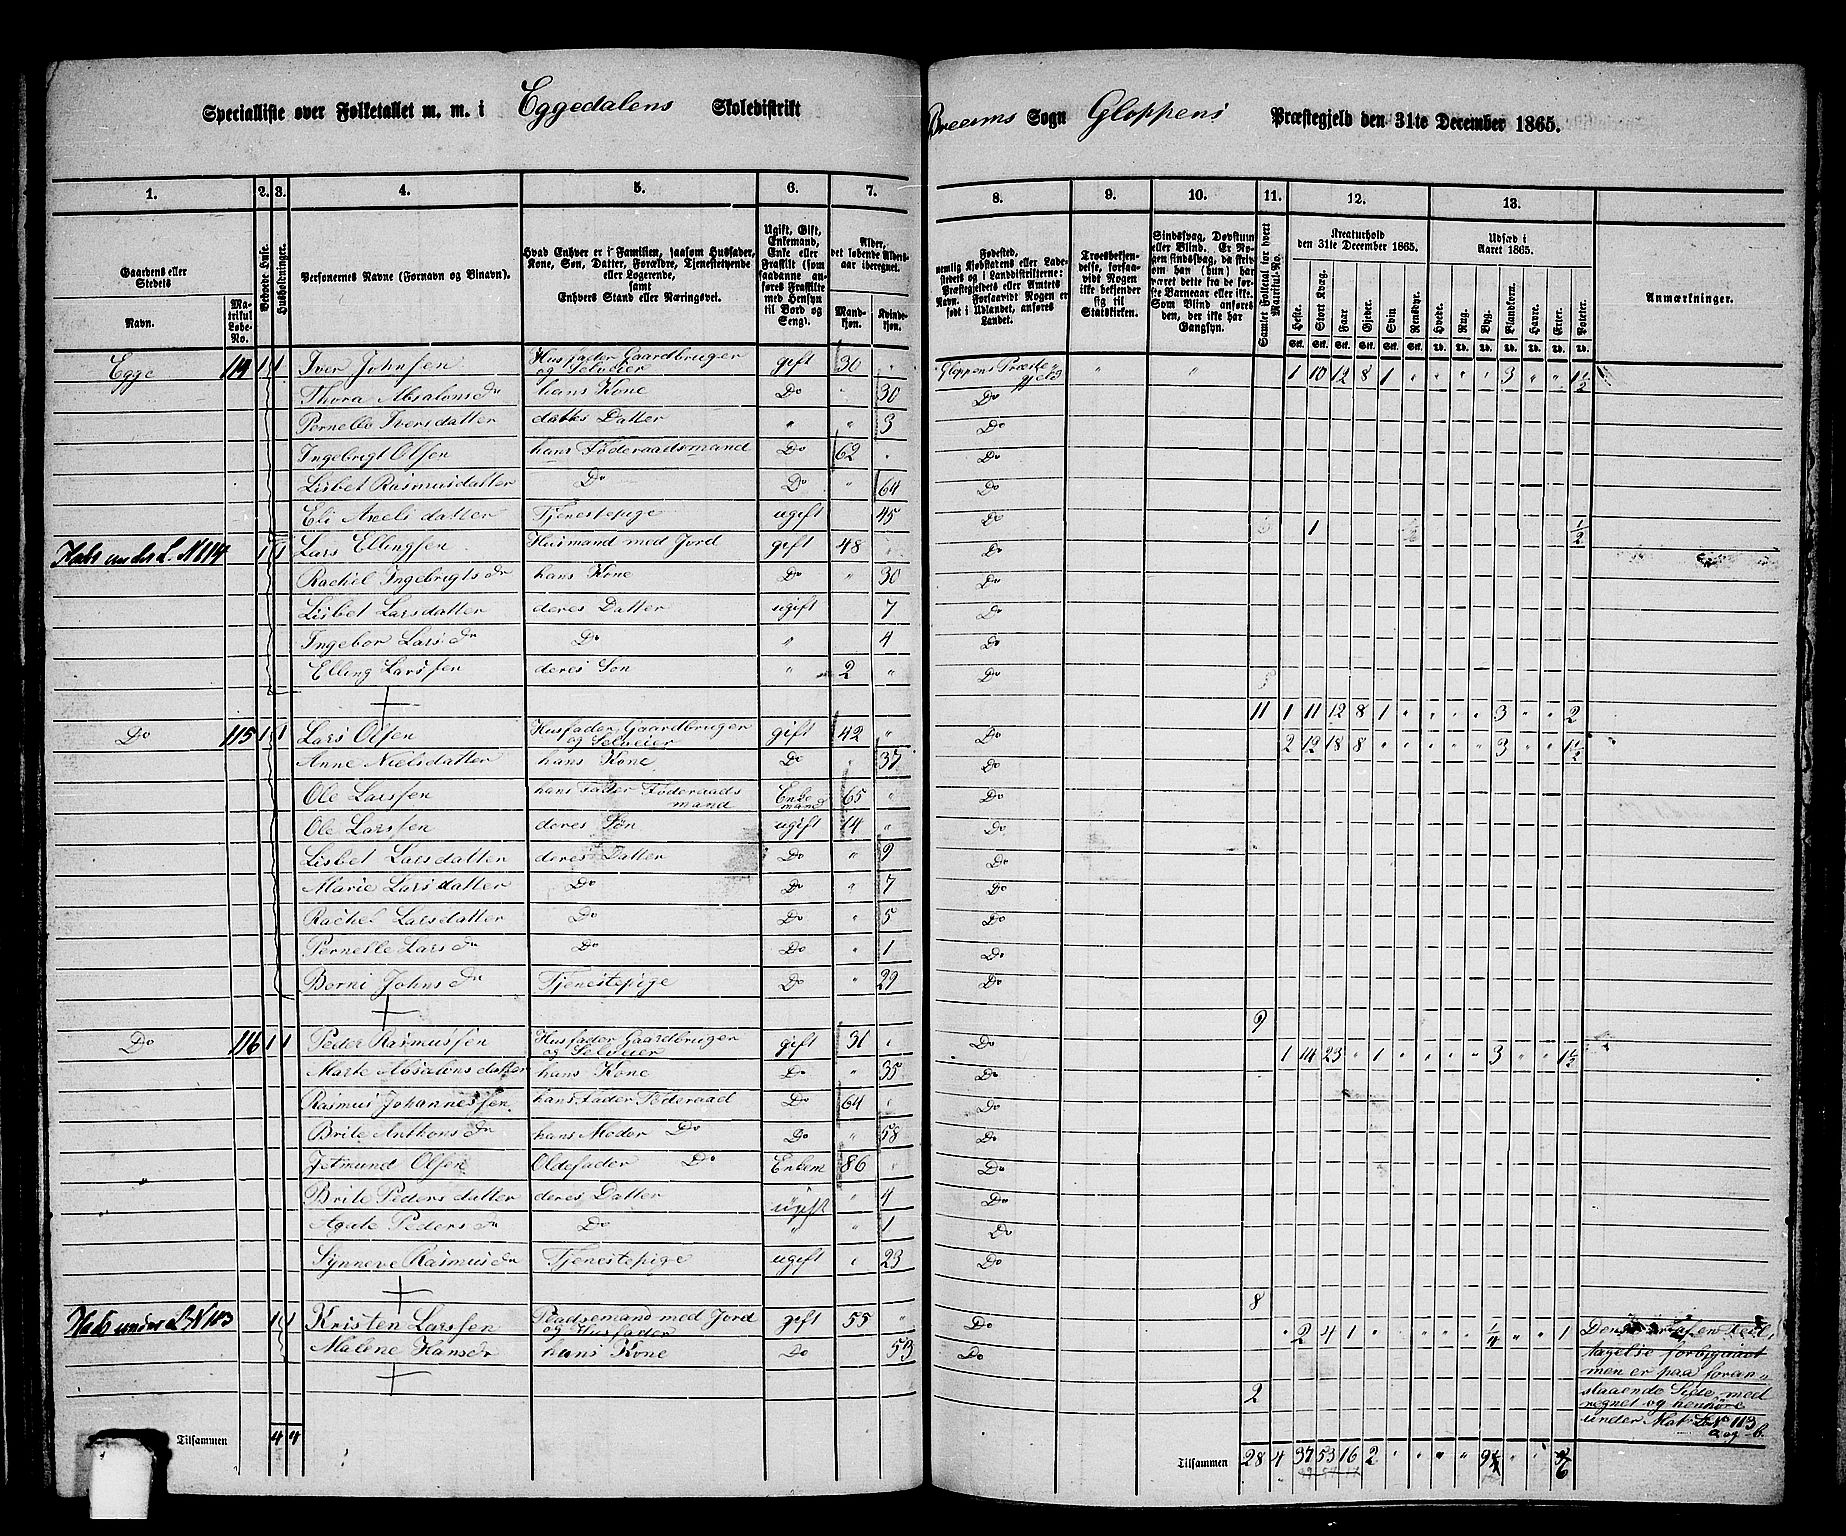 Specialliste over Folketallet m. m. i Eggedalens Skoledistrikt
Breems Sogn Gloppens Præstegjeld den 31te December 1865.
1. 2. 3. 4. 5. 6. 7.
8. 9. 10. 11. 12. 13.
Gaardens eller Stedets
Navn.
Matrikul Løbe-No.
Bebodde Huse.
Husholdninger.
Personernes Navne (Fornavn og Binavn).
Hvad Enhver er i Familien, saasom Husfader, Kone, Søn, Datter, Forældre, Tjenestetyende eller Logerende, samt Enhvers Stand eller Næringsvei.
Ugift, Gift, Enkemand, Enke eller Fraskilt (som saadanne anføres Fraskilte med Hensyn til Bord og Seng).
Alder, det løbende Alders-aar iberegnet.
Mandkjøn. Kvindekjøn.
Fødested,
Troesbekjendelse, forsaavidt Nogen ikke bekjender sig til Statskirken.
Samlet Folketal for hvert Matrikul-No.
Kreaturhold den 31te December 1865.
Udsæd i Aaret 1865.
Heste. Stort Kvæg. Faar Gjeder. Svin Rensdyr. Hvede. Rug. Byg. Blandkorn. Havre. Erter. Poteter.
Anmærkninger.
Egge 114 1 1 Iver Johnsen Husfader Gaardbruger og Selveier gift 30 " Gloppens Præstegjeld " " 1 10 12 8 1 " " " " 3 " " 1 1/2
Thora Absalonsdr hans Kone Do " 30 Do
Pernelle Iversdatter dattes Datter " " 3 Do
Ingebrigt Olsen hans Føderaadsmand Do 62 " Do
Lisbet Rasmusdatter Do Do " 64 Do
Eli Axelsdatter Tjenestepige ugift " 45 Do
under L. N 114 1 1 Lars Ellingsen Husmand med Jord gift 48 " Do 1 1/2
Rachel Ingebrigtsdr hans Kone Do " 30 Do
Lisbet Larsdatter deres Datter ugift " 7 Do
Ingebor Larsdr Do " 4 Do
Elling Larssen deres Søn " 2 " Do
11 1 11 12 8 1 " " " " 3 " " 2
Do 115 1 1 Lars Olsen Husfader Gaardbruger og Selveier gift 42 " Do 2 12 18 8 " " " " " 3 " " 1 1/2
Anne Nielsdatter hans Kone Do " 37 Do
Ole Larssen hans Fader Føderaadsmand Enkemand 65 " Do
Ole Larssen deres Søn ugift 14 " Do
Lisbet Larsdatter deres Datter Do " 9 Do
Marie Larsdatter Do Do " 7 Do
Rachel Larsdatter Do Do " 5 Do
Pernelle Larsdr Do Do " 1 Do
Berni Johnsdr Tjenestepige Do " 29 Do
9
Do 116 1 1 Peder Rasmussen Husfader Gaardbruger og Selveier gift 31 " Do 1 14 23 " 1 " " " " 3 " " 1 1/2
Marte Absalonsdatter hans Kone Do " 35 Do
Rasmus Johannessen hans Fader Føderaad Do 64 " Do
Brite Anthonsdr hans Moder Do Do " 58 Do
Jetmund Olsen Oldefader Do Enkem 86 " Do
Brite Pedersdatter deres Datter ugift " 4 Do
Agate Pedersdr Do " " 1 Do
Synneve Rasmusdr Tjenestepige ugift " 23 Do
8
under L N 113 1 1 Kristen Larssen Pladsemand med Jord og Husfader gift 55 " Do " 2 4 1 " " " " 1/4 " " 1
Malene Hansdr hans Kone Do 53 Do
2
tagelse forbigaaet
men er paa foran-
staaende Side med
regnet og henhøre
under Mat L No 113
a og b.
Tilsammen 4 4
Tilsammen 28 4 37 53 16 2 " " " " 9 " " 6